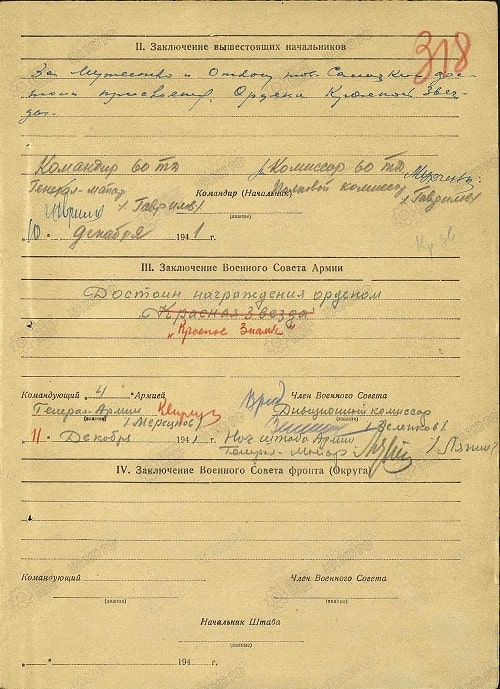 318
II. Заключение вышестоящих начальников
За Мужество и Отвагу тов.
Ордена Красной Звез-
ды.
Командир 60 тд
Комиссар 60 тд
Генерал-майор
Командир (Начальник)
Полковой комиссар
(звание)
"10" декабря 1941 г.
III. Заключение Военного Совета Армии
Достоин награждения орденом
"Красная Звезда"
"Красное Знамя"
Командующий 4 Армией
Врид Член Военного Совета
Генерал-Армии
(звание)
Дивизионный комиссар
(звание)
/Мерецков/
11 Декабря 1941 г.
Нач штаба Армии
Генерал-Майор
IV. Заключение Военного Совета фронта (Округа)
Командующий
Член Военного Совета
(звание)
(звание)
Начальник Штаба
(звание)
" " 194 г.